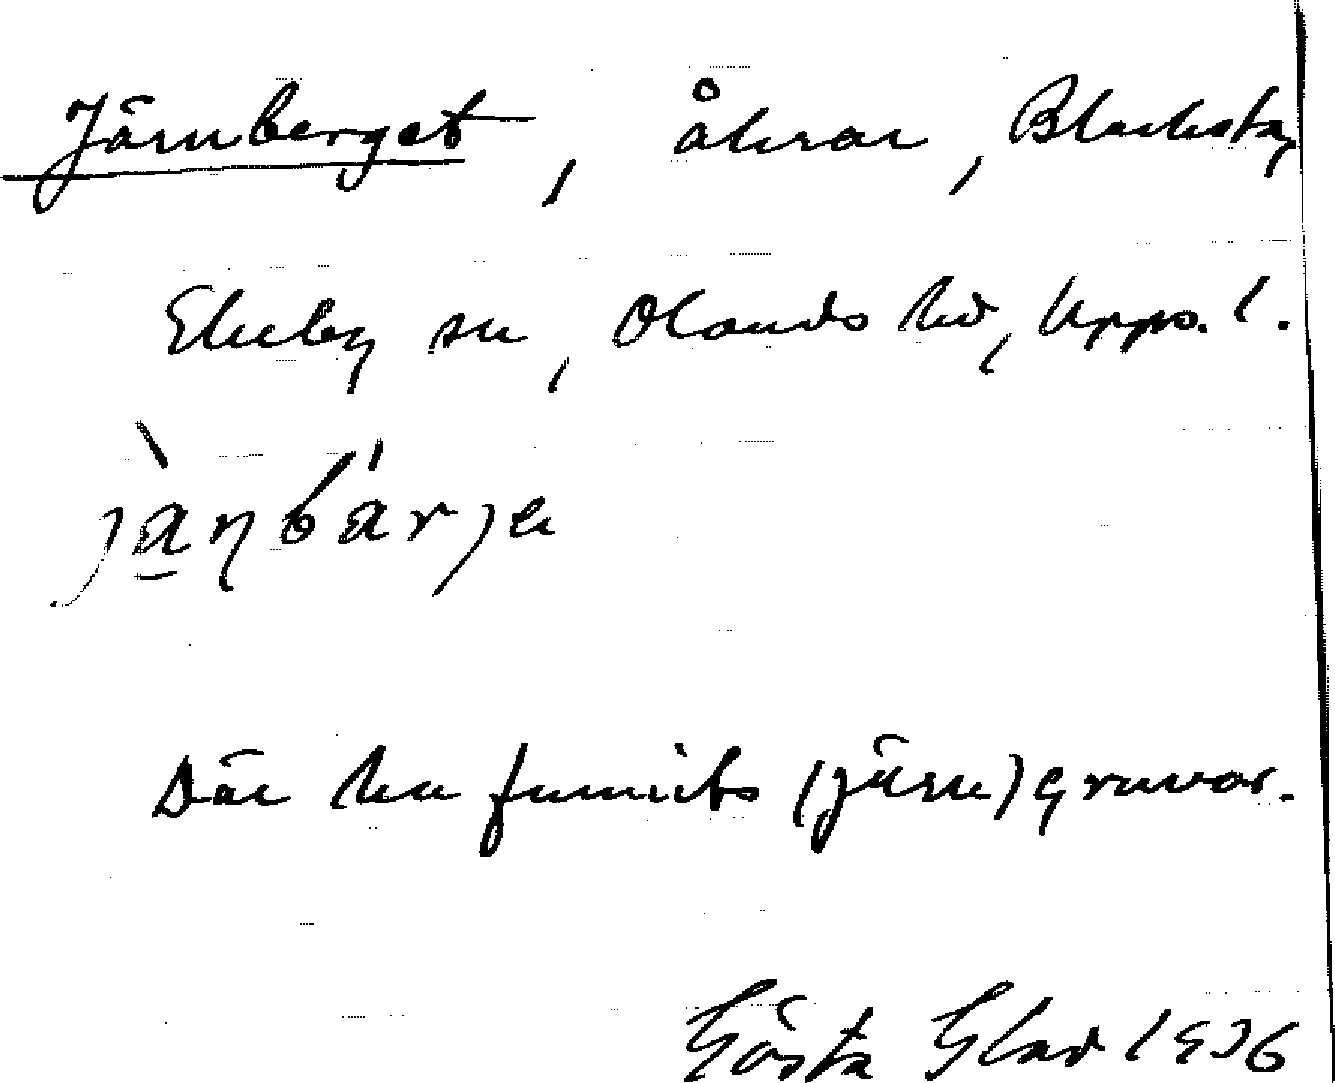 Järnberget, åkrar, Blacksta,
Ekeby sn, Olands hd, Upps. l.
jànbárje
Där ha funnits (järn)gruvor.
Gösta Glad 1936